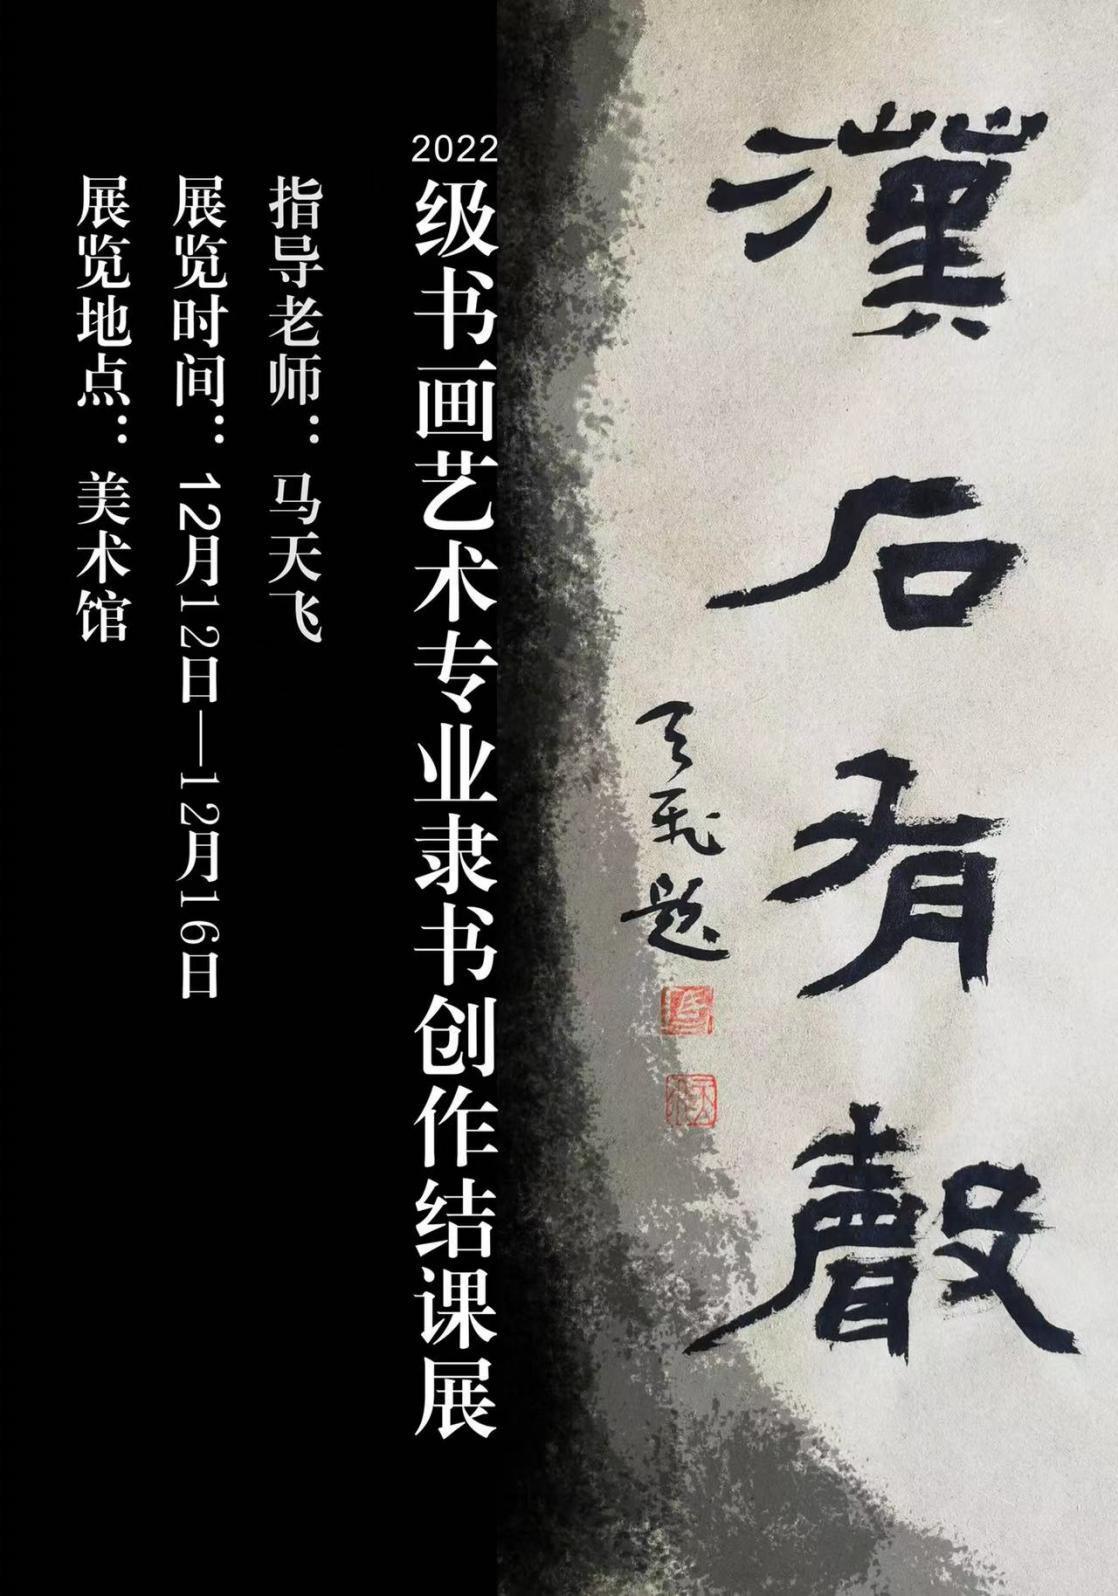 漢石有聲
天飛题
2022级书画艺术专业隶书创作结课展
指导老师：马天飞
展览时间：12月12日—12月16日
展览地点：美术馆